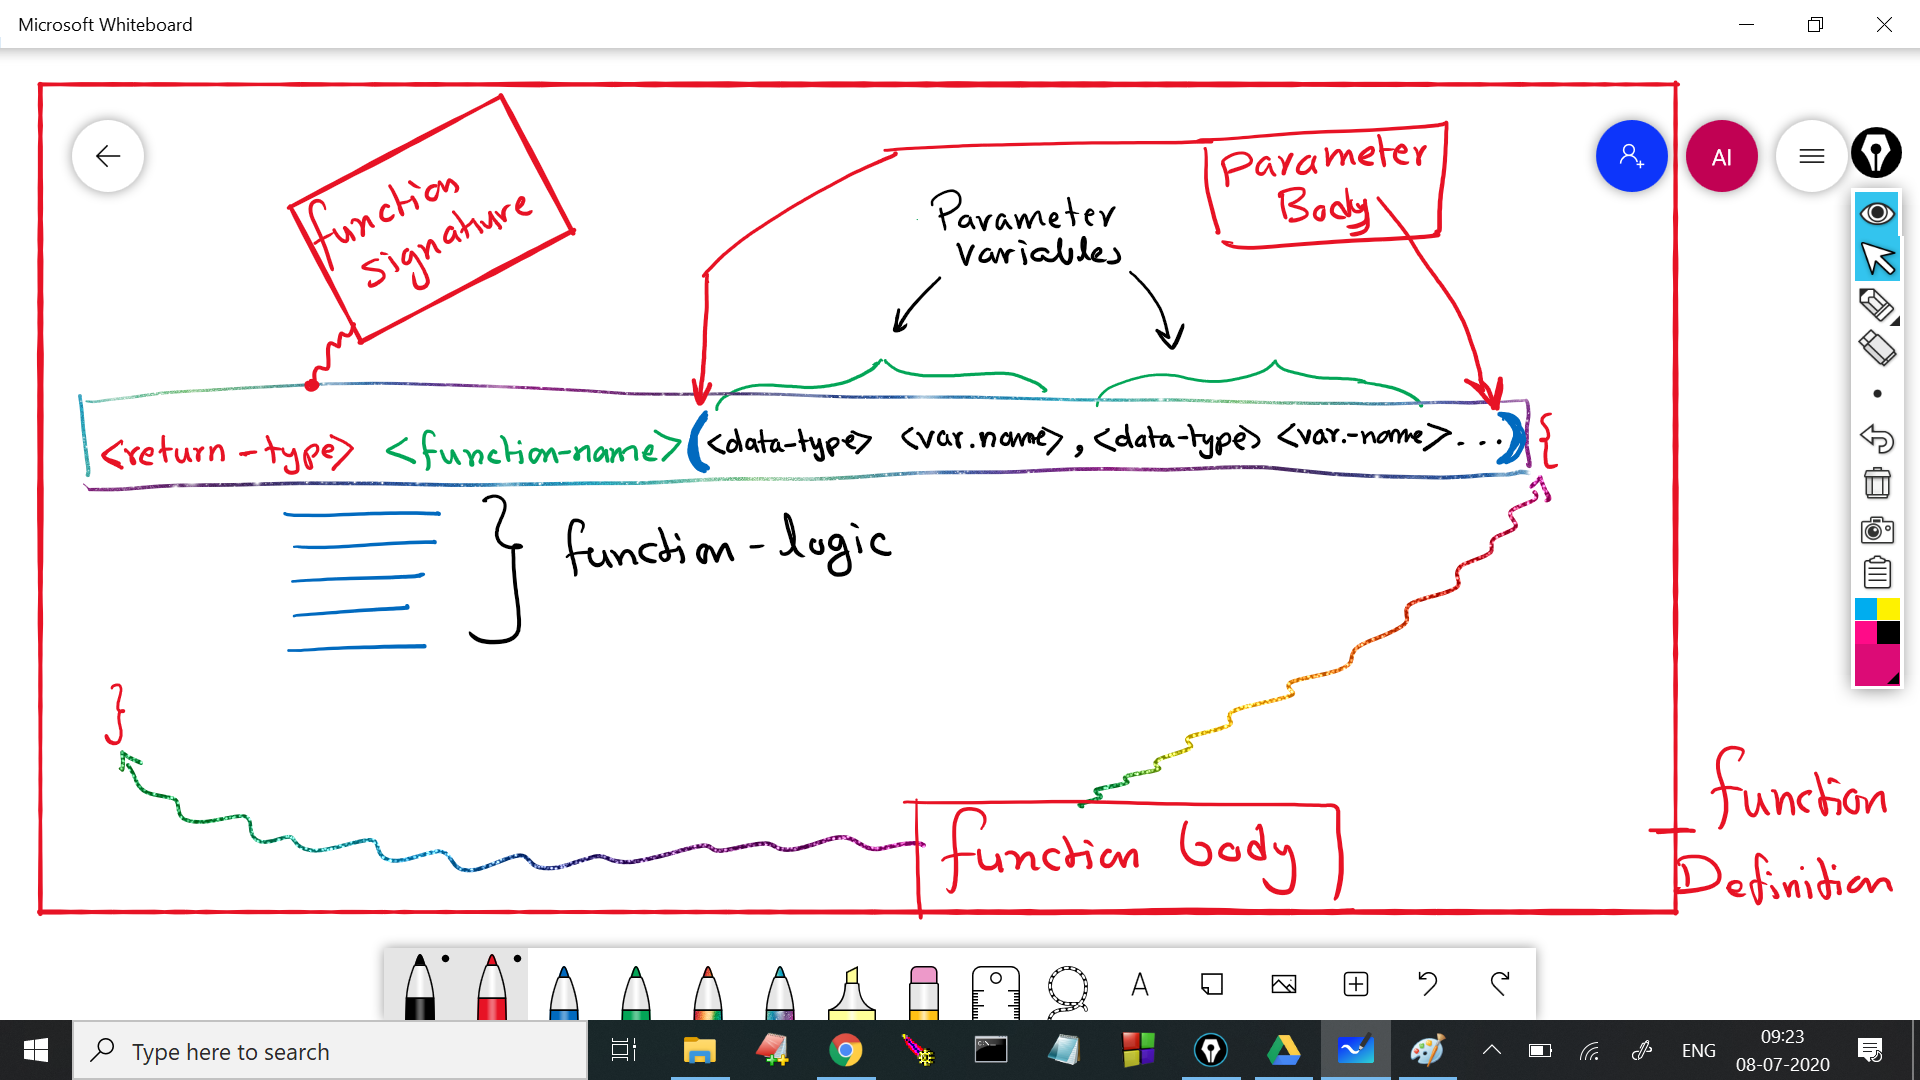 Microsoft Whiteboard
function
signature
Parameter
Body
Parameter
variables
AI
<return-type> <function-name> (<data-type> <var.name>, <data-type> <var.-name>...) {
} function-logic
}
function body
function
Definition
A
Type here to search
ENG
09:23
08-07-2020